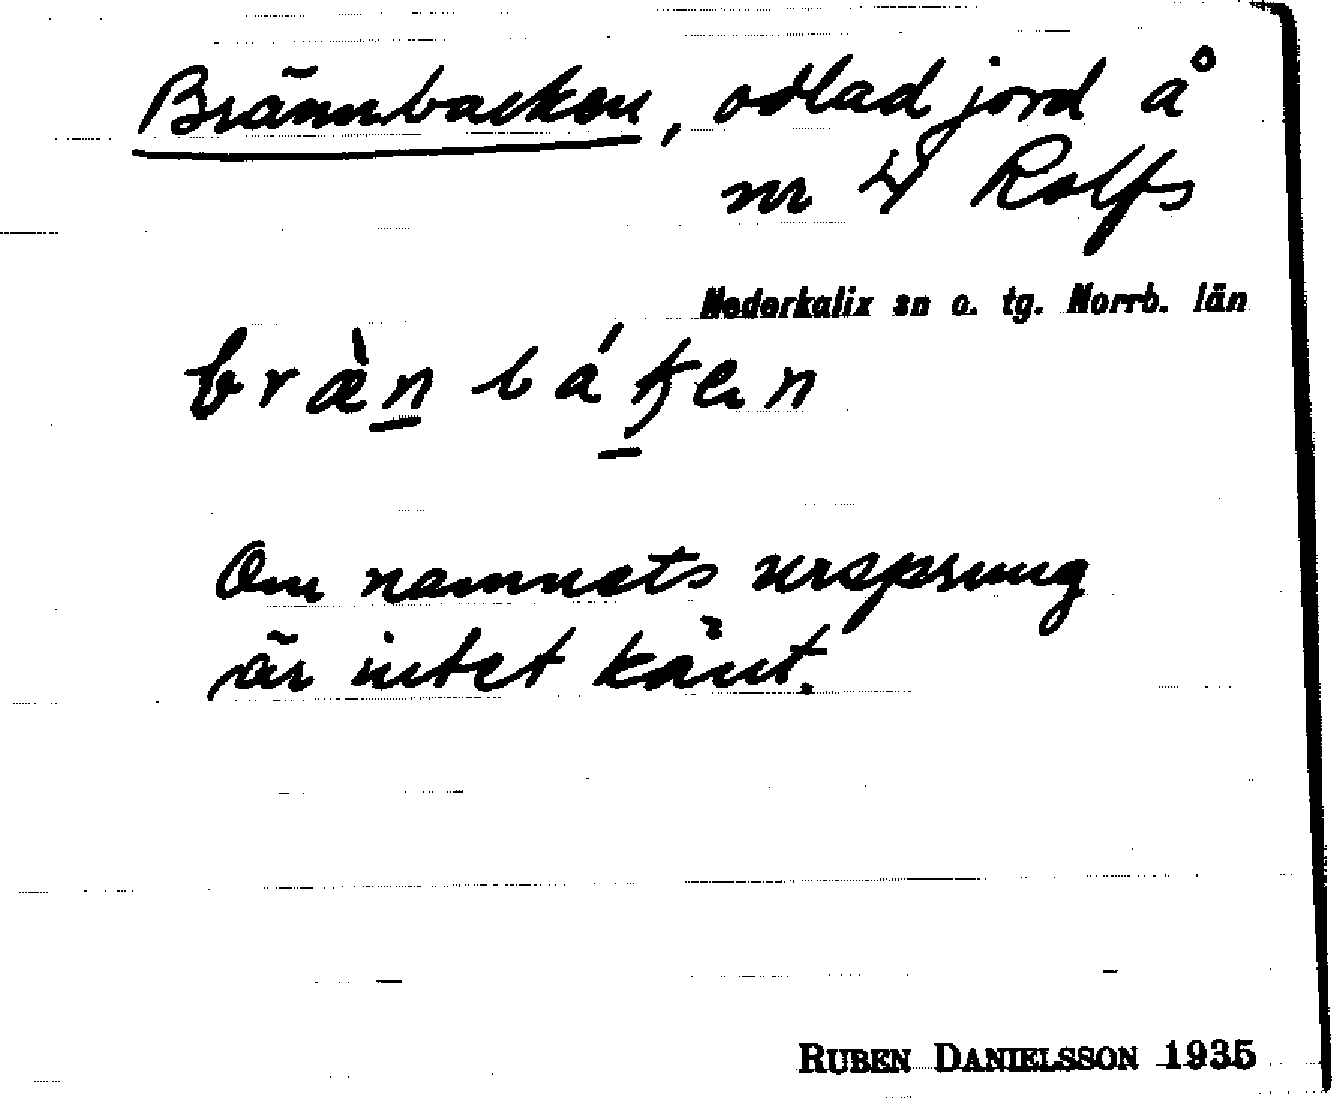 Brännbacken, odlad jord å
nr 4 Rolfs
Nederkalix sn o. tg. Norrb. län
Om namnets ursprung
är intet känt.
RUBEN DANIELSSON 1935